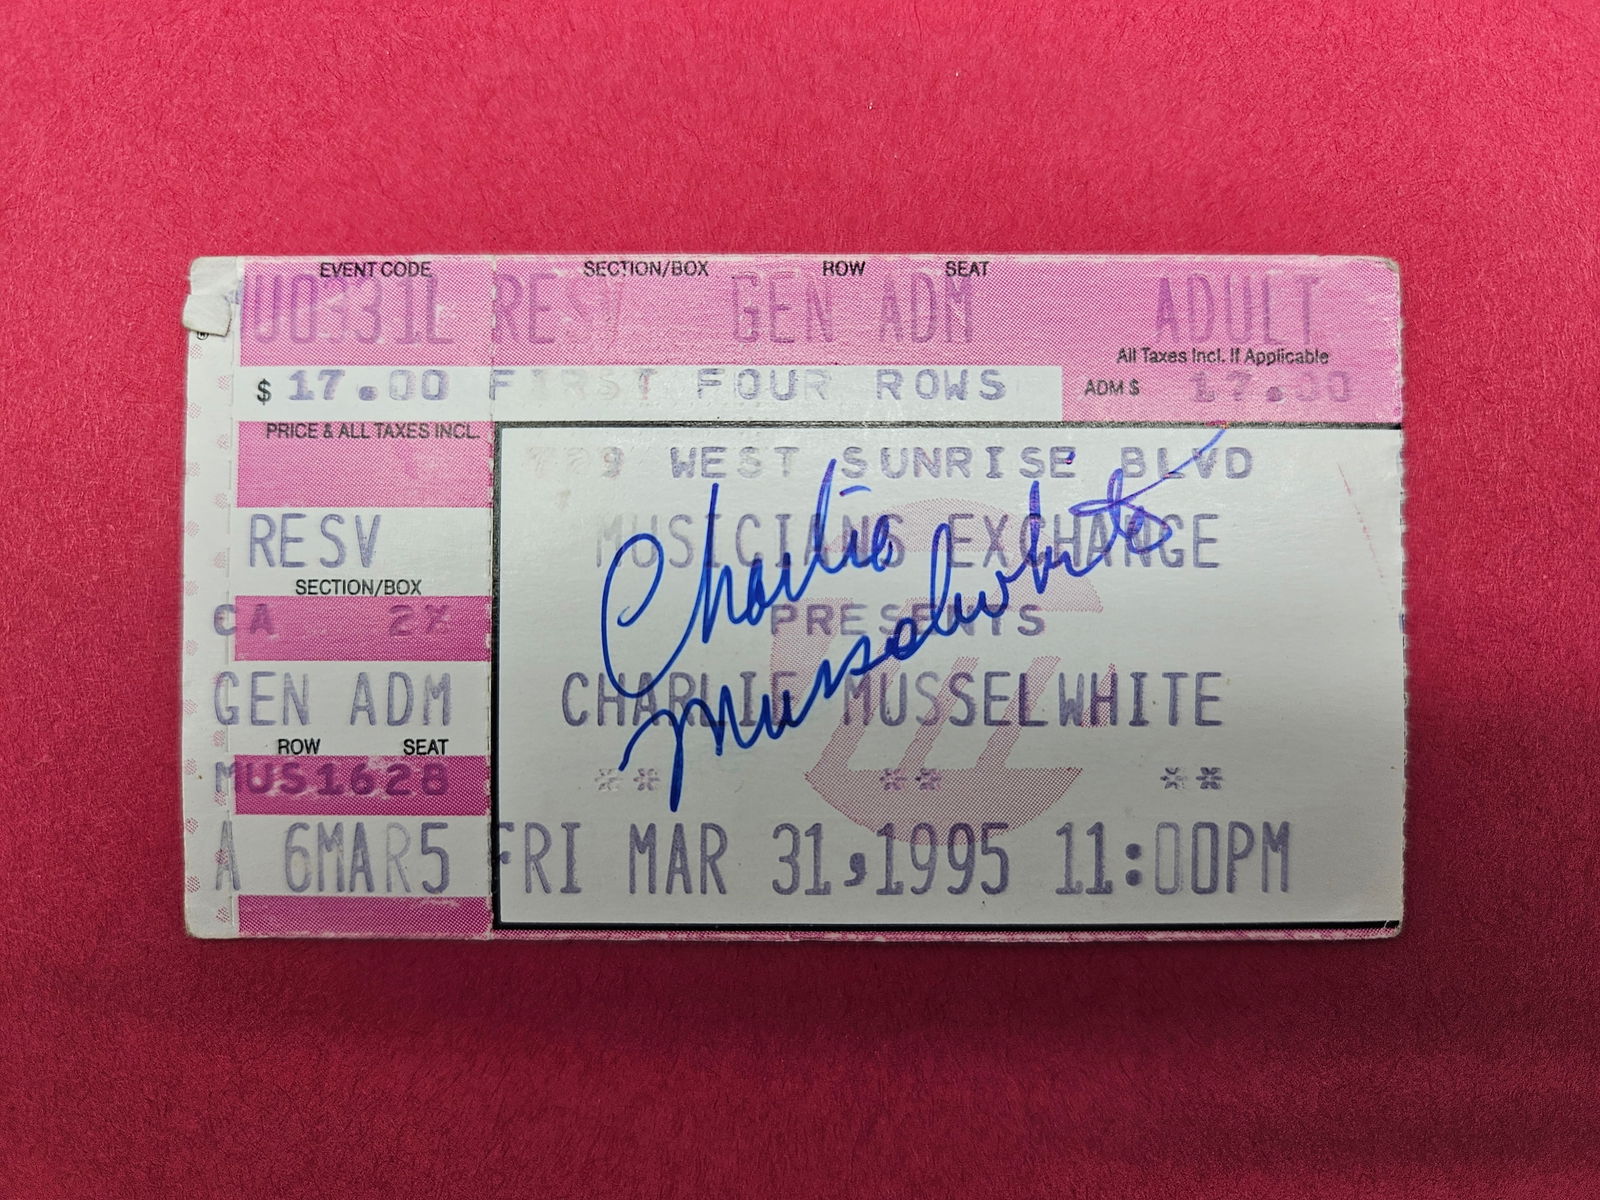 EVENT CODE SECTION/BOX ROW SEAT
UO331L RESV GEN ADM ADULT
All Taxes Incl. If Applicable
$ 17.00 FIRST FOUR ROWS ADM $ 17.00
PRICE & ALL TAXES INCL.
729 WEST SUNRISE BLVD
RESV
MUSICIANS EXCHANGE
SECTION/BOX
CA 2X
PRESENTS
GEN ADM
CHARLIE MUSSELWHITE
Charlie
Musselwhite
ROW SEAT
MUS1628
** ** **
A 6MAR5 FRI MAR 31,1995 11:00PM